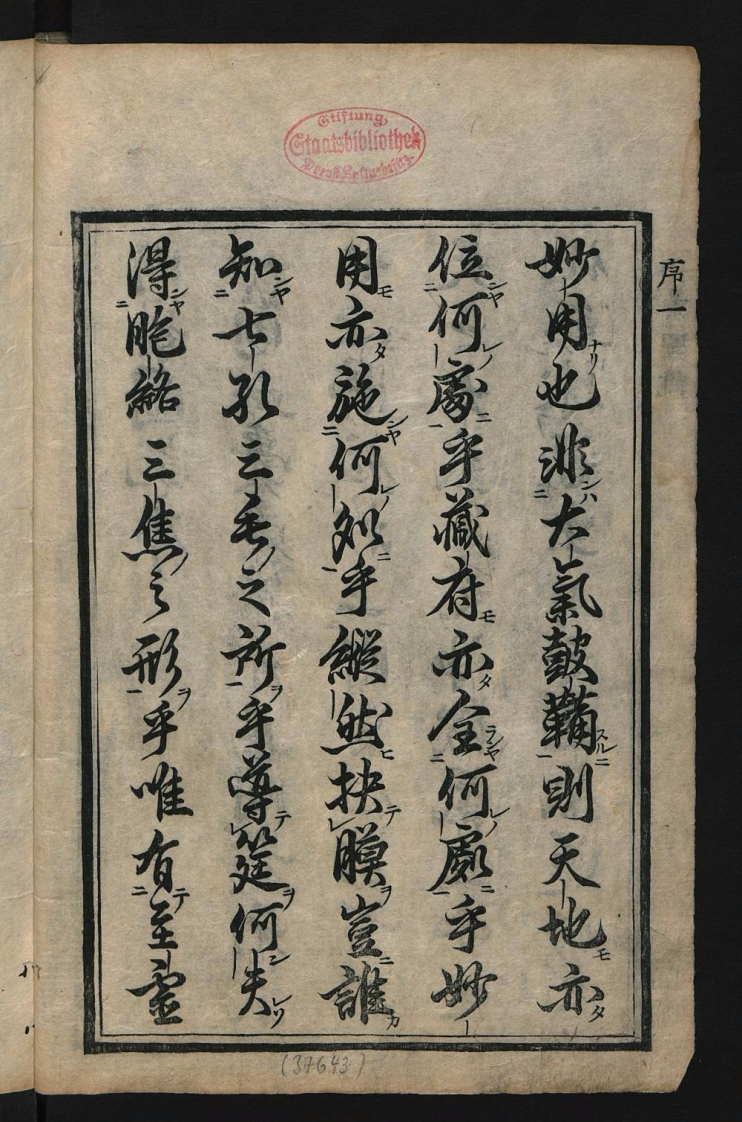 序一
妙用也非大氣鼓鞴則天地亦
位何處乎藏府亦全何處乎妙
用亦施何処乎縱然抉膜豈誰
知七孔三毛之所乎導筳何失
得胞絡三焦之形乎唯有至靈
Stiftung
Staatsbibliothek
Preuß. Kulturbesitz
(37643)